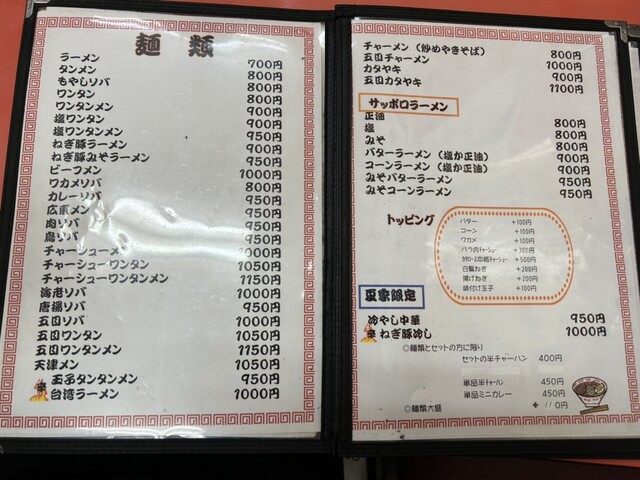 麺類
ラーメン 700円
タンメン 800円
もやしソバ 800円
ワンタン 800円
ワンタンメン 900円
塩ワンタン 900円
塩ワンタンメン 950円
ねぎ豚ラーメン 900円
ねぎ豚みそラーメン 950円
ビーフメン 1000円
ワカメソバ 800円
カレーソバ 950円
広東メン 950円
肉ソバ 950円
鳥ソバ 950円
チャーシューメン 1000円
チャーシューワンタン 1050円
チャーシューワンタンメン 1150円
海老ソバ 1000円
唐揚ソバ 950円
五目ソバ 1000円
五目ワンタン 1050円
五目ワンタンメン 1150円
天津メン 1000円
玉子タンタンメン 950円
辛 台湾ラーメン 1000円
チャーメン（炒めやきそば） 800円
五目チャーメン 1000円
カタヤキ 900円
五目カタヤキ 1100円
サッポロラーメン
正油 800円
塩 800円
みそ 800円
バターラーメン（塩か正油） 900円
コーンラーメン（塩か正油） 900円
みそバターラーメン 950円
みそコーンラーメン 950円
トッピング
バター +100円
コーン +100円
ワカメ +100円
バラ肉チャーシュー +300円
カタロース本格チャーシュー +500円
白髪ねぎ +200円
揚げねぎ +200円
味付け玉子 +100円
夏季限定
冷やし中華 950円
辛 ねぎ豚冷し 1000円
◎麺類とセットの方に限り
セットの半チャーハン 400円
単品半チャーハン 450円
単品ミニカレー 450円
◎麺類大盛